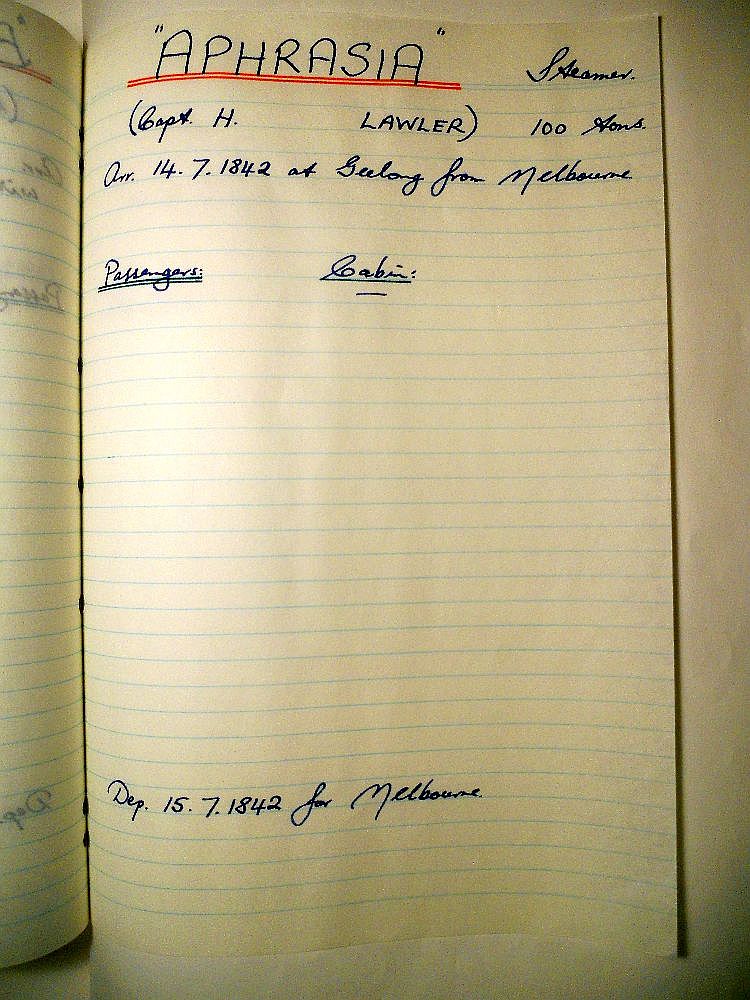 "APHRASIA" Steamer.
(Capt. H. LAWLER) 100 tons.
Arr. 14.7.1842 at Geelong from Melbourne
Passengers: Cabin:
Dep. 15.7.1842 for Melbourne.